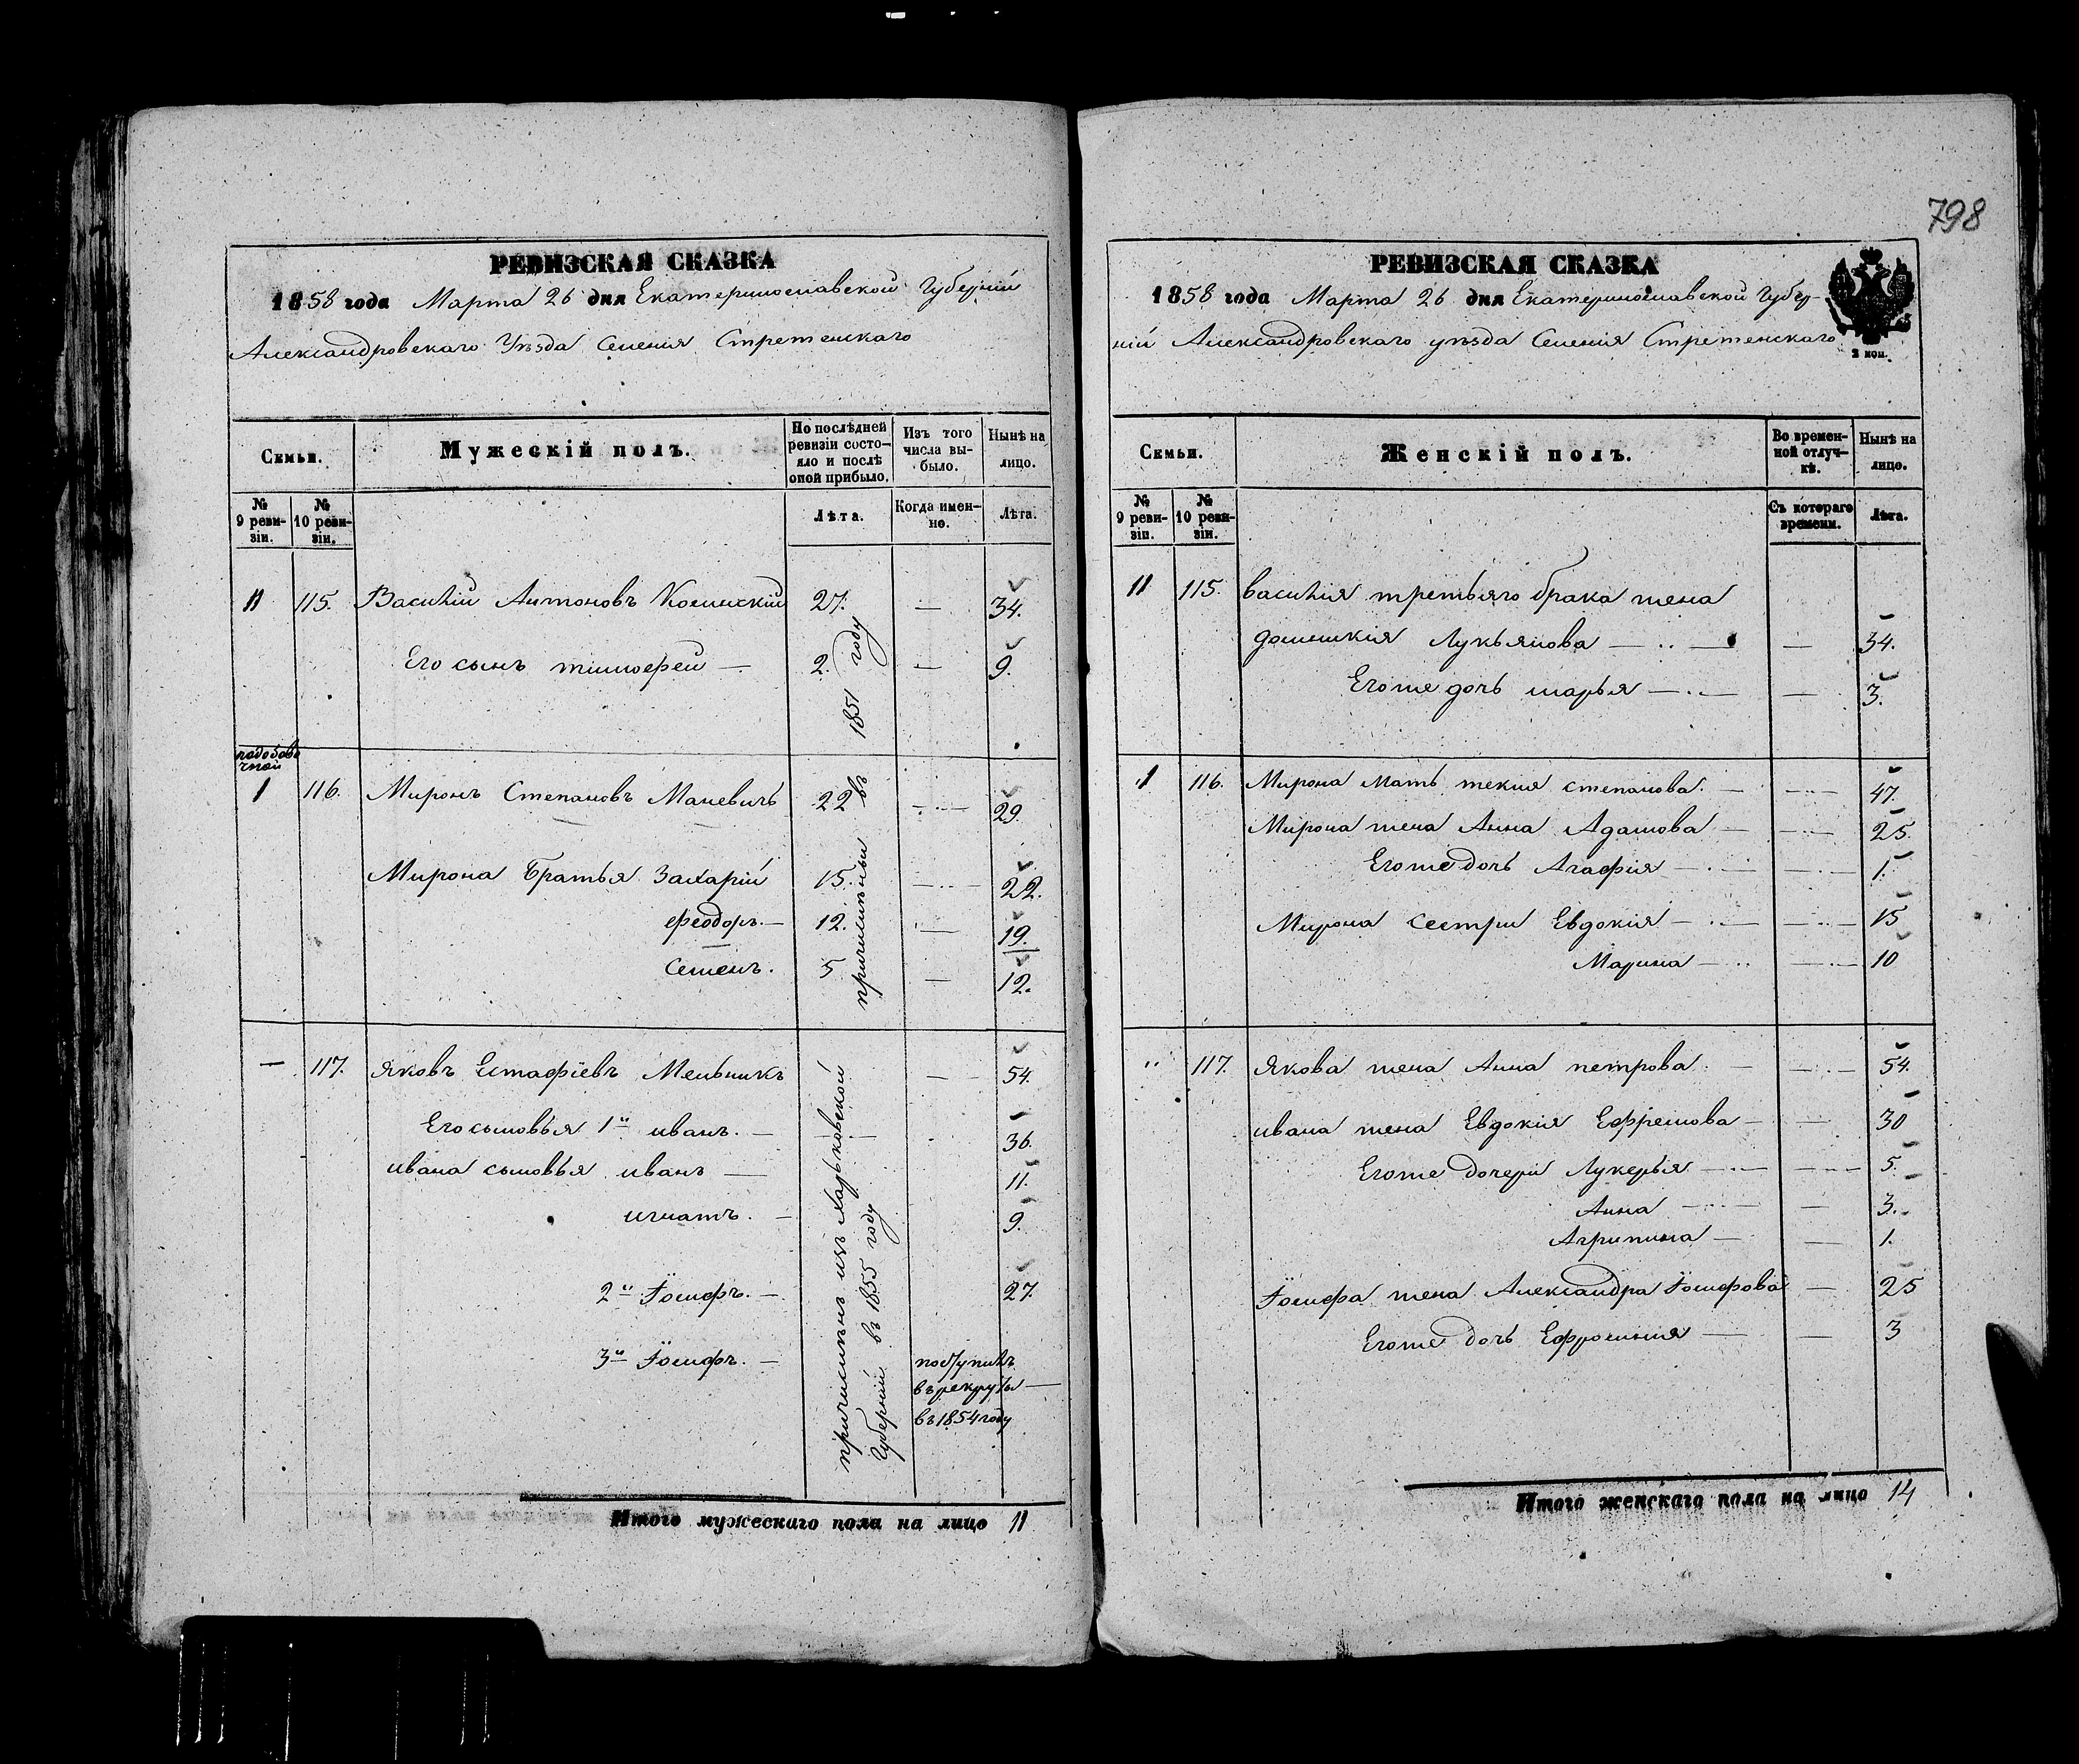 798
РЕВИЗСКАЯ СКАЗКА
1858 года Марта 26 дня Екатеринославской Губерніи
Александровскаго Уѣзда Селенія Стретенскаго
Семьи.
Мужескій полъ.
По послѣдней ревизіи состо-
яло и послѣ
оной прибыло.
Изъ того
числа вы-
было.
Нынѣ на
лицо.
№
9 реви-
зіи.
№
10 реви-
зіи.
Лѣта.
Когда имен-
но.
Лѣта.
11 115. Василій Антоновъ 27. — 34.
Его сынъ тимофей — 2. — 9.
1 116. Миронъ Степановъ Маневичъ 22 — 29.
Мирона Братья Захарій 15. — 22.
феодоръ. — 12. — 19.
Семенъ. 5 — 12.
причислены въ 1851 году
— 117. Яковъ Естафіевъ Мельникъ — 54.
Его сыновья 1й иванъ. — 36.
ивана сыновья иванъ — 11.
игнатъ. — 9.
2й Іосифъ. — 27.
3й Іосифъ. — поступилъ
въ рекруты —
въ 1854 году
причисленъ изъ Харьковской
Губерніи въ 1855 году
Итого мужескаго пола на лицо 11
РЕВИЗСКАЯ СКАЗКА
1858 года Марта 26 дня Екатеринославской Губер-
ніи Александровскаго уѣзда Селенія Стретенскаго
2 коп.
Семьи.
Женскій полъ.
Во времен-
ной отлуч-
кѣ.
Нынѣ на
лицо.
№
9 реви-
зіи.
№
10 реви-
зіи.
Съ котораго
времени.
Лѣта.
11 115. василія третьяго брака жена
Лукьянова — — 34.
Его же дочь марья — — 3.
1 116. Мирона Мать текля степанова. — — 47.
Мирона жена Анна Адамова — — 25.
Его же дочь Агафія — — 1.
Мирона сестри Евдокія — — 15
Марина — — 10
" 117. Якова жена Анна петрова. — — 54.
ивана жена Евдокія Ефремова — — 30
Его же дочери Лукерья — — 5.
Анна — — 3.
Агрипина — — 1.
Іосифа жена Александра Іосифова — 25
Его же дочь Ефросинія — — 3
Итого женскаго пола на лицо 14